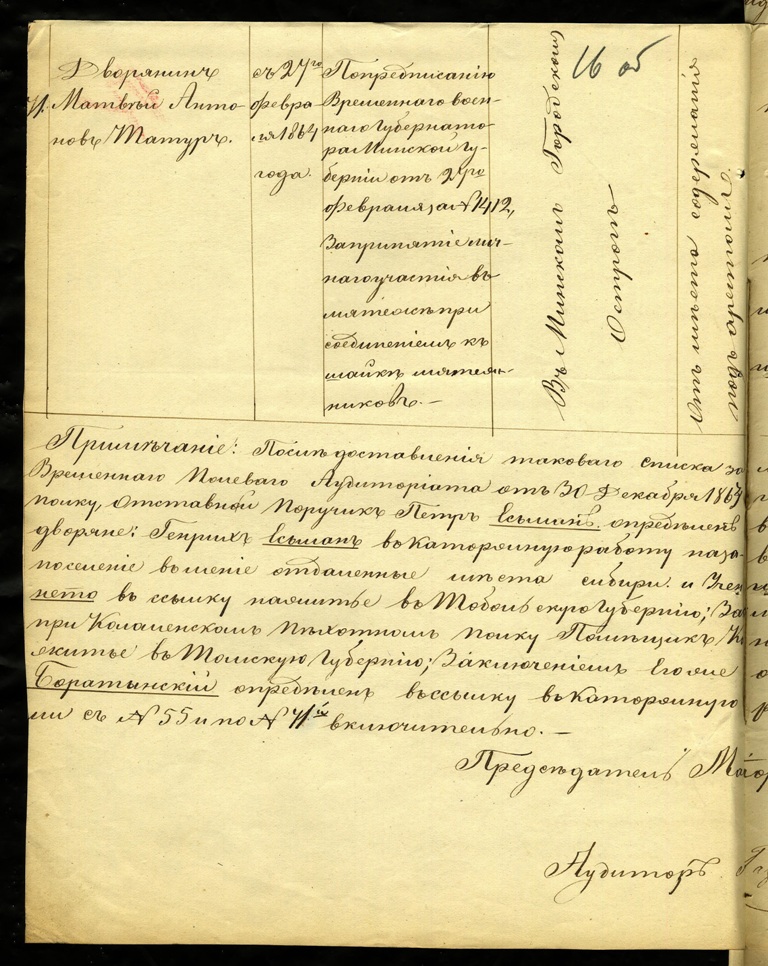 16 об
71.
Дворянинъ
Матвѣй Анто-
новъ Татуръ.
съ 27го
февра-
ля 1864
года.
По предписанію
Временнаго воен-
наго Губернато-
ра Минской Гу-
берніи отъ 2го
февраля за № 1412,
За принятіе лич-
наго участія въ
мятежѣ при
соединеніемъ къ
шайкѣ мятеж-
никовъ. —
Въ Минскомъ Городскомъ
Острогѣ
Отъ мѣста содержанія
подъ арестомъ.
Примѣчаніе: Послѣ доставленія таковаго списка за
Временнаго Полеваго Аудиторіата отъ 30 Декабря 1864
полку, отставной Поручикъ Петръ Есьманъ. опредѣленъ
дворяне: Генрихъ Есьманъ въ Каторжную работу на за-
поселеніе въ менѣе отдаленные мѣста сибири. и
нето въ ссылку на житье въ Тобольскую Губернію; За
при Коломенскомъ Пѣхотномъ полку Помѣщикъ
жительство въ Томскую Губернію; Заключеніемъ Его же
Боратынскій опредѣленъ въ ссылку въ Каторжную
ми съ № 55 и по № 71й включительно. —
Предсѣдатель Маіор
Аудиторъ